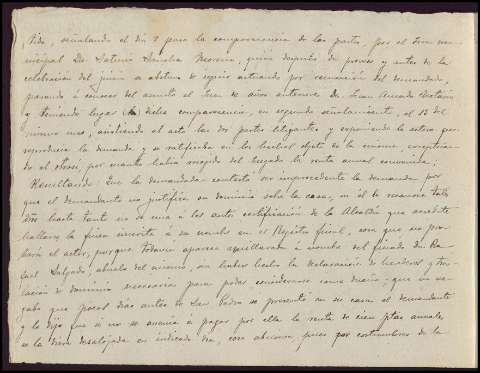 vido, señalando el día 8 para la comparecencia de las partes, por el Juez mu-
nicipal Dn Saturio Sancha Moreno, quien después de previas y antes de la
celebración del juicio se abstuvo de seguir actuando por recusación del demandado,
pasando á conocer del asunto el Juez de años anteriores Dn Juan Amado
y teniendo lugar dicha comparecencia, en segundo señalamiento, el 12 del
mismo mes, asistiendo al acto las dos partes litigantes y exponiendo la actora por
reproducida la demanda y se ratificaba en los hechos objeto de la misma, exceptuan-
do el otrosí, por cuanto había recogido del Juzgado la renta anual convenida.
Resultando: Que la demandada contestó ser improcedente la demanda por
que el demandante no justifica su dominio sobre la casa, ni él le reconoce tal
dro hasta tanto no se una á los autos certificación de la Alcaldía que acredite
hallarse la finca inscrita á su nombre en el Registro fiscal, cosa que no pro-
bará el actor, porque todavía aparece amillarada á nombre del finado Dn Ra-
fael Salgado, abuelo del mismo, sin haber hecho la declaración de herederos y tras-
lación de dominio necesarias para poder considerarse como dueño; que no ne-
gaba que pocos días antes de San Pedro se presentó en su casa el demandante
y le dijo que si no se avenía á pagar por ella la renta de cien ptas anuales
se la diera desalojada en indicado día, cosa abusiva, pues por costumbre de la